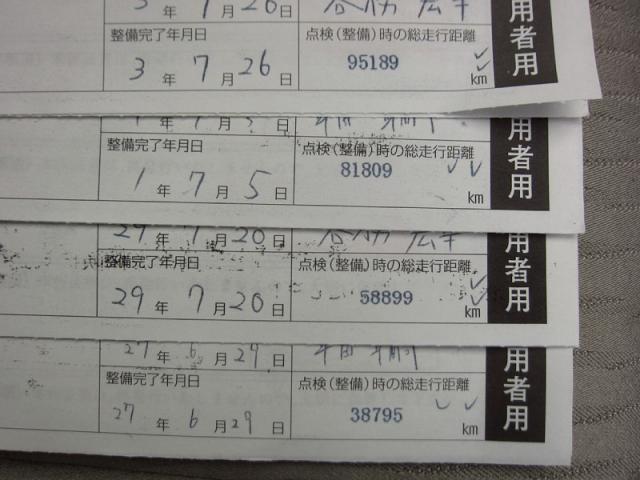 3 年 7 月 26 日
整備完了年月日 点検(整備)時の総走行距離
3 年 7 月 26 日 95189 km
用者用
1 年 7 月 5 日
整備完了年月日 点検(整備)時の総走行距離
1 年 7 月 5 日 81809 km
用者用
29 年 7 月 20 日
整備完了年月日 点検(整備)時の総走行距離
29 年 7 月 20 日 58899 km
用者用
27 年 6 月 29 日
整備完了年月日 点検(整備)時の総走行距離
27 年 6 月 29 日 38795 km
用者用